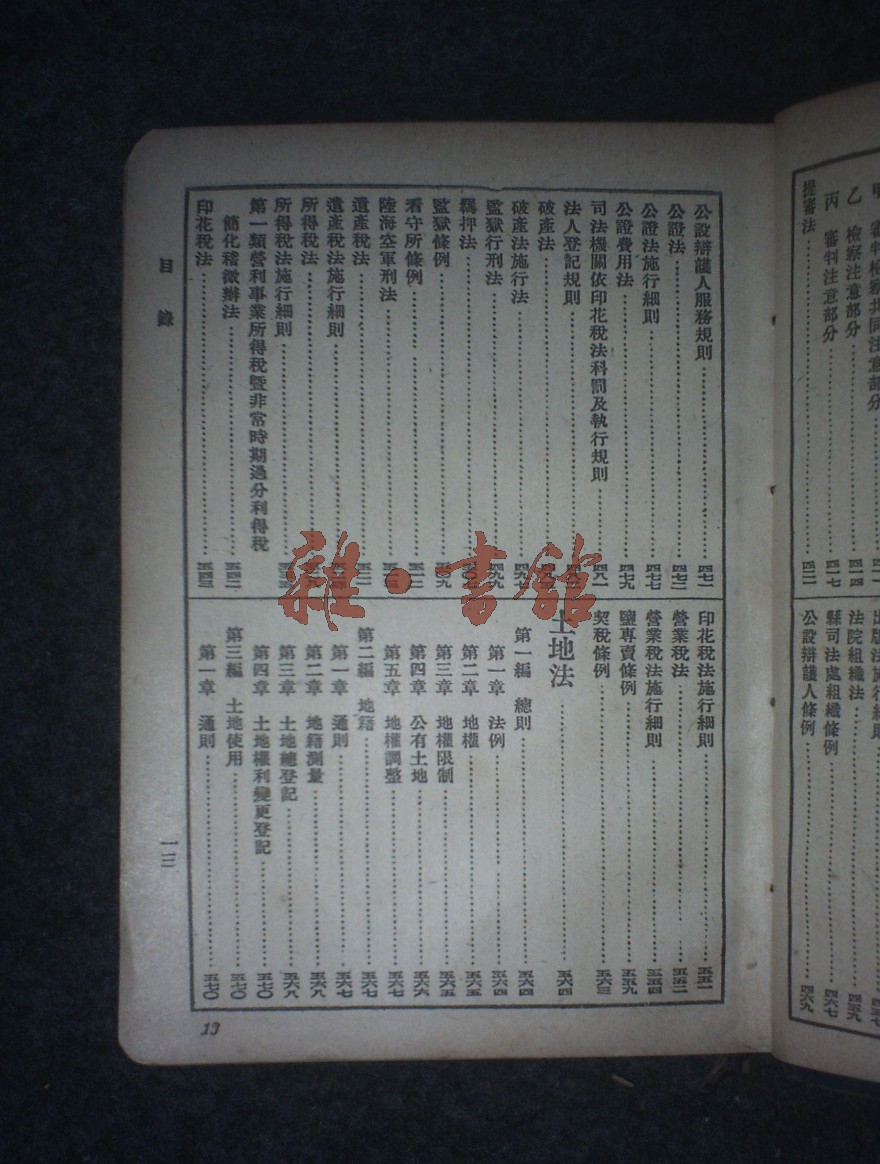 甲 審判檢察共同注意部分
乙 檢察注意部分……四一四
丙 審判注意部分……四一七
提審法……四二一
法施行細則……四五七
法院組織法……四五九
縣司法處組織條例……四六七
公設辯護人條例……四六九
公設辯護人服務規則……四七一
公證法……四七二
公證法施行細則……四七七
公證費用法……四七九
司法機關依印花稅法科罰及執行規則……四八一
法人登記規則……
破產法……
破產法施行法……四九七
監獄行刑法……四九九
羈押法……
監獄條例……五〇九
看守所條例……
陸海空軍刑法……
遺產稅法……
遺產稅法施行細則……
所得稅法……
所得稅法施行細則……
第一類營利事業所得稅暨非常時期過分利得稅
簡化稽徵辦法……五四二
印花稅法……五四三
印花稅法施行細則……五五一
營業稅法……五五二
營業稅法施行細則……五五四
鹽專賣條例……五五九
契稅條例……五六三
土地法……五六四
第一編 總則……五六四
第一章 法例……五六四
第二章 地權……五六五
第三章 地權限制……五六五
第四章 公有土地……五六六
第五章 地權調整……五六七
第二編 地籍……五六七
第一章 通則……五六七
第二章 地籍測量……五六八
第三章 土地總登記……五六八
第四章 土地權利變更登記……五七〇
第三編 土地使用……五七〇
第一章 通則……五七〇
目錄
一三
13
雜·書館